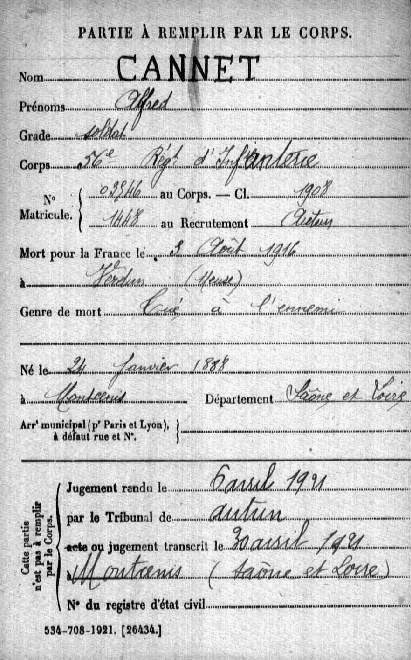 PARTIE À REMPLIR PAR LE CORPS.
Nom CANNET
Prénoms Alfred
Grade soldat
Corps 56e Régt d'Infanterie
N° Matricule. { 03946 au Corps. — Cl. 1908
1448 au Recrutement Autun
Mort pour la France le 3 Août 1916
à Verdun (Meuse)
Genre de mort Tué à l'ennemi
Né le 24 Janvier 1888
à Montcenis Département Saône et Loire
Arrt municipal (pr Paris et Lyon), à défaut rue et N°. }
Cette partie n'est pas à remplir par le Corps.
Jugement rendu le 6 avril 1921
par le Tribunal de autun
acte ou jugement transcrit le 30 avril 1921
à Montcenis (Saône et Loire)
N° du registre d'état civil
534-708-1921. [26434.]